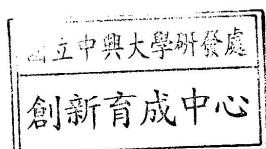 國立中興大學研發處
創新育成中心